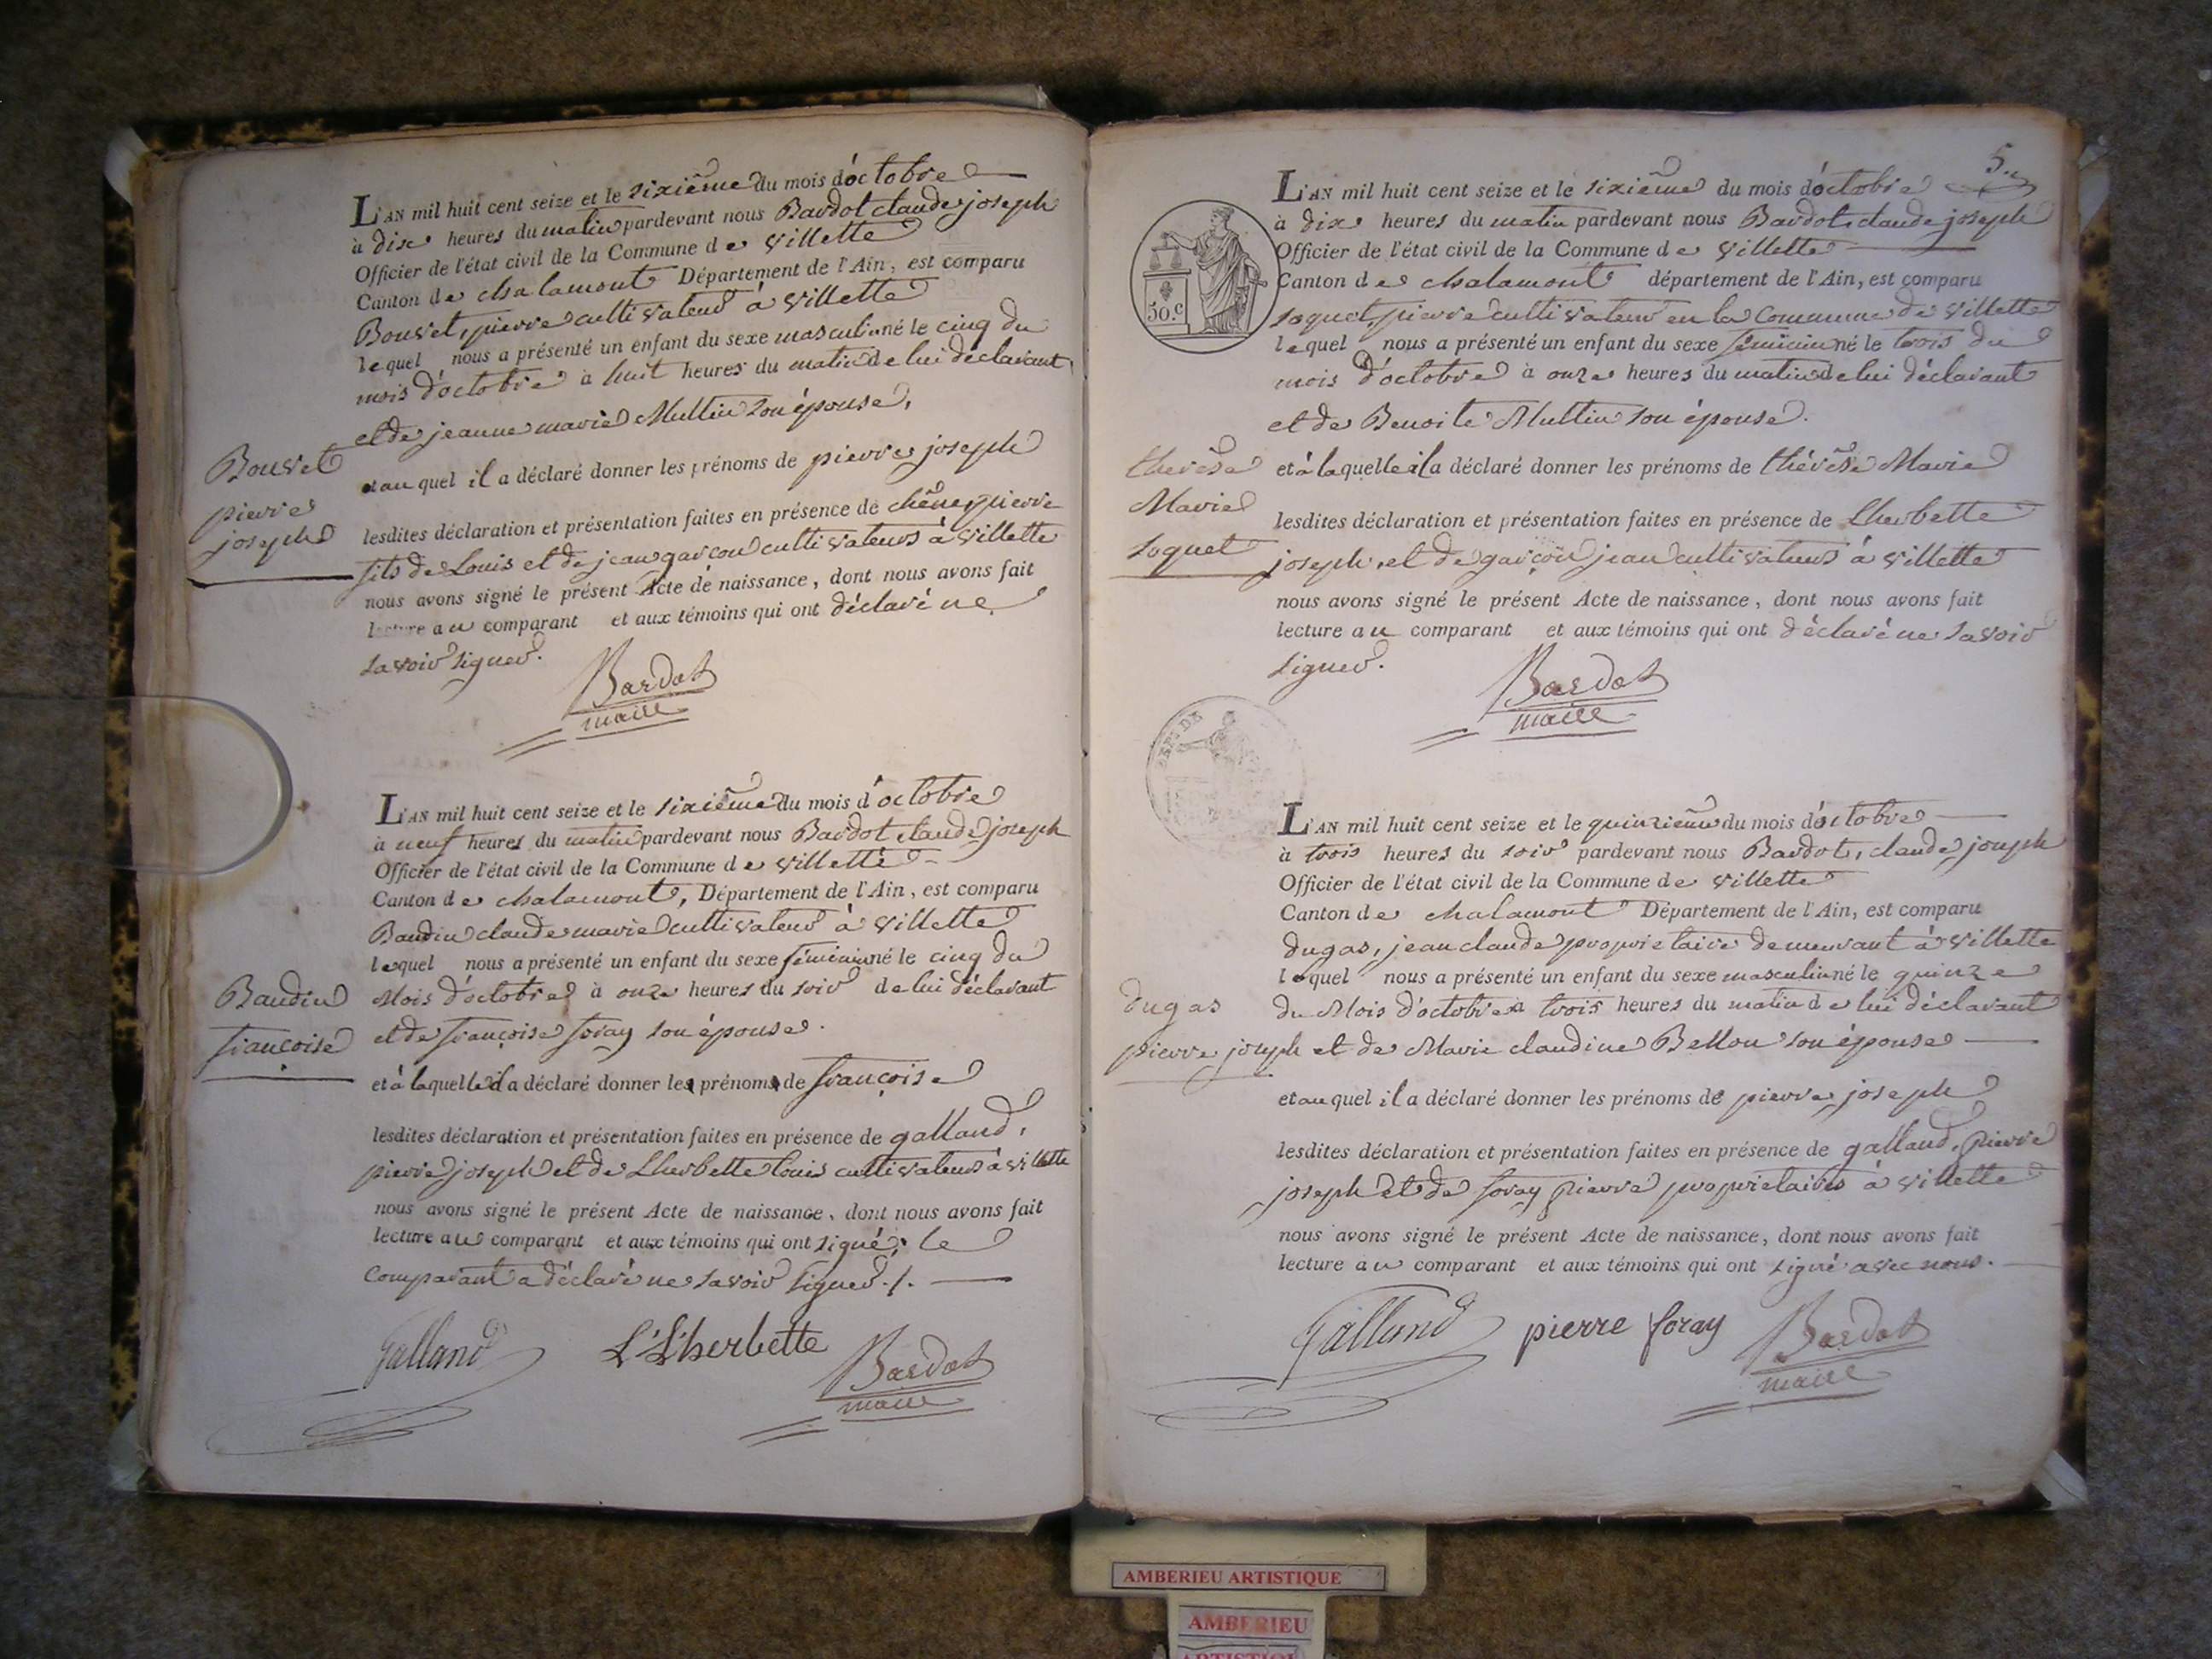 L'AN mil huit cent seize et le sixième du mois d'octobre
à dix heures du matin pardevant nous Bardot claude joseph
Officier de l'état civil de la Commune de villette
Canton de chalamont Département de l'Ain, est comparu
Bouvet, pierre cultivateur à villette
lequel nous a présenté un enfant du sexe masculin né le cinq du
mois d'octobre à huit heures du matin de lui déclarant
et de jeanne marie Multin son épouse,
Bouvet
pierre
joseph
et au quel il a déclaré donner les prénoms de pierre joseph
lesdites déclaration et présentation faites en présence de chêne, pierre
fils de Louis et de jean garçon cultivateurs à villette
nous avons signé le présent Acte de naissance, dont nous avons fait
lecture au comparant et aux témoins qui ont déclaré ne
savoir signer.
Bardot
maire
L'AN mil huit cent seize et le sixième du mois d'octobre
à neuf heures du matin pardevant nous Bardot claude joseph
Officier de l'état civil de la Commune de villette
Canton de chalamont, Département de l'Ain, est comparu
Baudin claude marie cultivateur à villette
lequel nous a présenté un enfant du sexe féminin né le cinq du
Mois d'octobre à onze heures du soir de lui déclarant
et de françoise foray son épouse.
Baudin
françoise
et à laquelle il a déclaré donner les prénoms de françoise
lesdites déclaration et présentation faites en présence de galland,
pierre joseph et de Lherbette louis cultivateurs à villette
nous avons signé le présent Acte de naissance, dont nous avons fait
lecture au comparant et aux témoins qui ont signé; le
comparant a déclaré ne savoir signer./.
Galland
L'L'herbette
Bardot
maire
5.
L'AN mil huit cent seize et le sixième du mois d'octobre
à dix heures du matin pardevant nous Bardot, claude joseph
Officier de l'état civil de la Commune de villette
Canton de chalamont département de l'Ain, est comparu
50.c
soquet, pierre cultivateur en la Commune de villette
lequel nous a présenté un enfant du sexe féminin né le trois du
mois d'octobre à onze heures du matin de lui déclarant
et de Benoite Multin son épouse.
thérèse
Marie
soquet
et à laquelle il a déclaré donner les prénoms de thérèse Marie
lesdites déclaration et présentation faites en présence de Lherbette
joseph, et de garçon jean cultivateurs à villette
nous avons signé le présent Acte de naissance, dont nous avons fait
lecture au comparant et aux témoins qui ont déclaré ne savoir
signer.
Bardot
maire
L'AN mil huit cent seize et le quinzième du mois d'octobre
à trois heures du soir pardevant nous Bardot, claude joseph
Officier de l'état civil de la Commune de villette
Canton de chalamont Département de l'Ain, est comparu
dugas, jean claude propriétaire demeurant à villette
lequel nous a présenté un enfant du sexe masculin né le quinze
du Mois d'octobre à trois heures du matin de lui déclarant
et de Marie claudine Bellon son épouse
dugas
pierre joseph
et au quel il a déclaré donner les prénoms de pierre, joseph
lesdites déclaration et présentation faites en présence de galland, pierre
joseph et de foray pierre propriétaires à villette
nous avons signé le présent Acte de naissance, dont nous avons fait
lecture au comparant et aux témoins qui ont signé avec nous.
Galland
pierre foray
Bardot
maire
AMBERIEU ARTISTIQUE
AMBERIEU
ARTISTIQUE